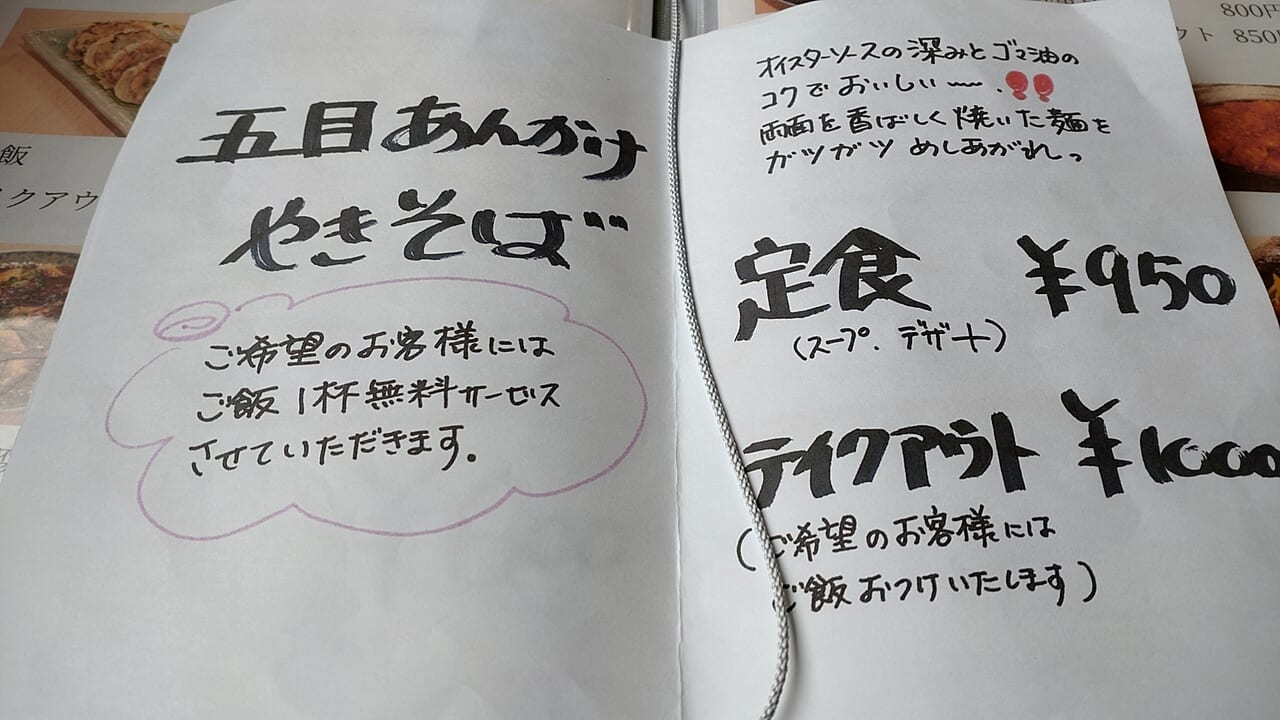 五目あんかけ
やきそば
ご希望のお客様には
ご飯1杯無料サービス
させていただきます。
オイスターソースの深みとゴマ油の
コクでおいしい〜。!!
両面を香ばしく焼いた麺を
ガツガツ めしあがれっ
定食 ¥950
(スープ、デザート)
テイクアウト ¥1000
(ご希望のお客様には
ご飯おつけいたします)
飯
クアウ
800円
ウト 850円